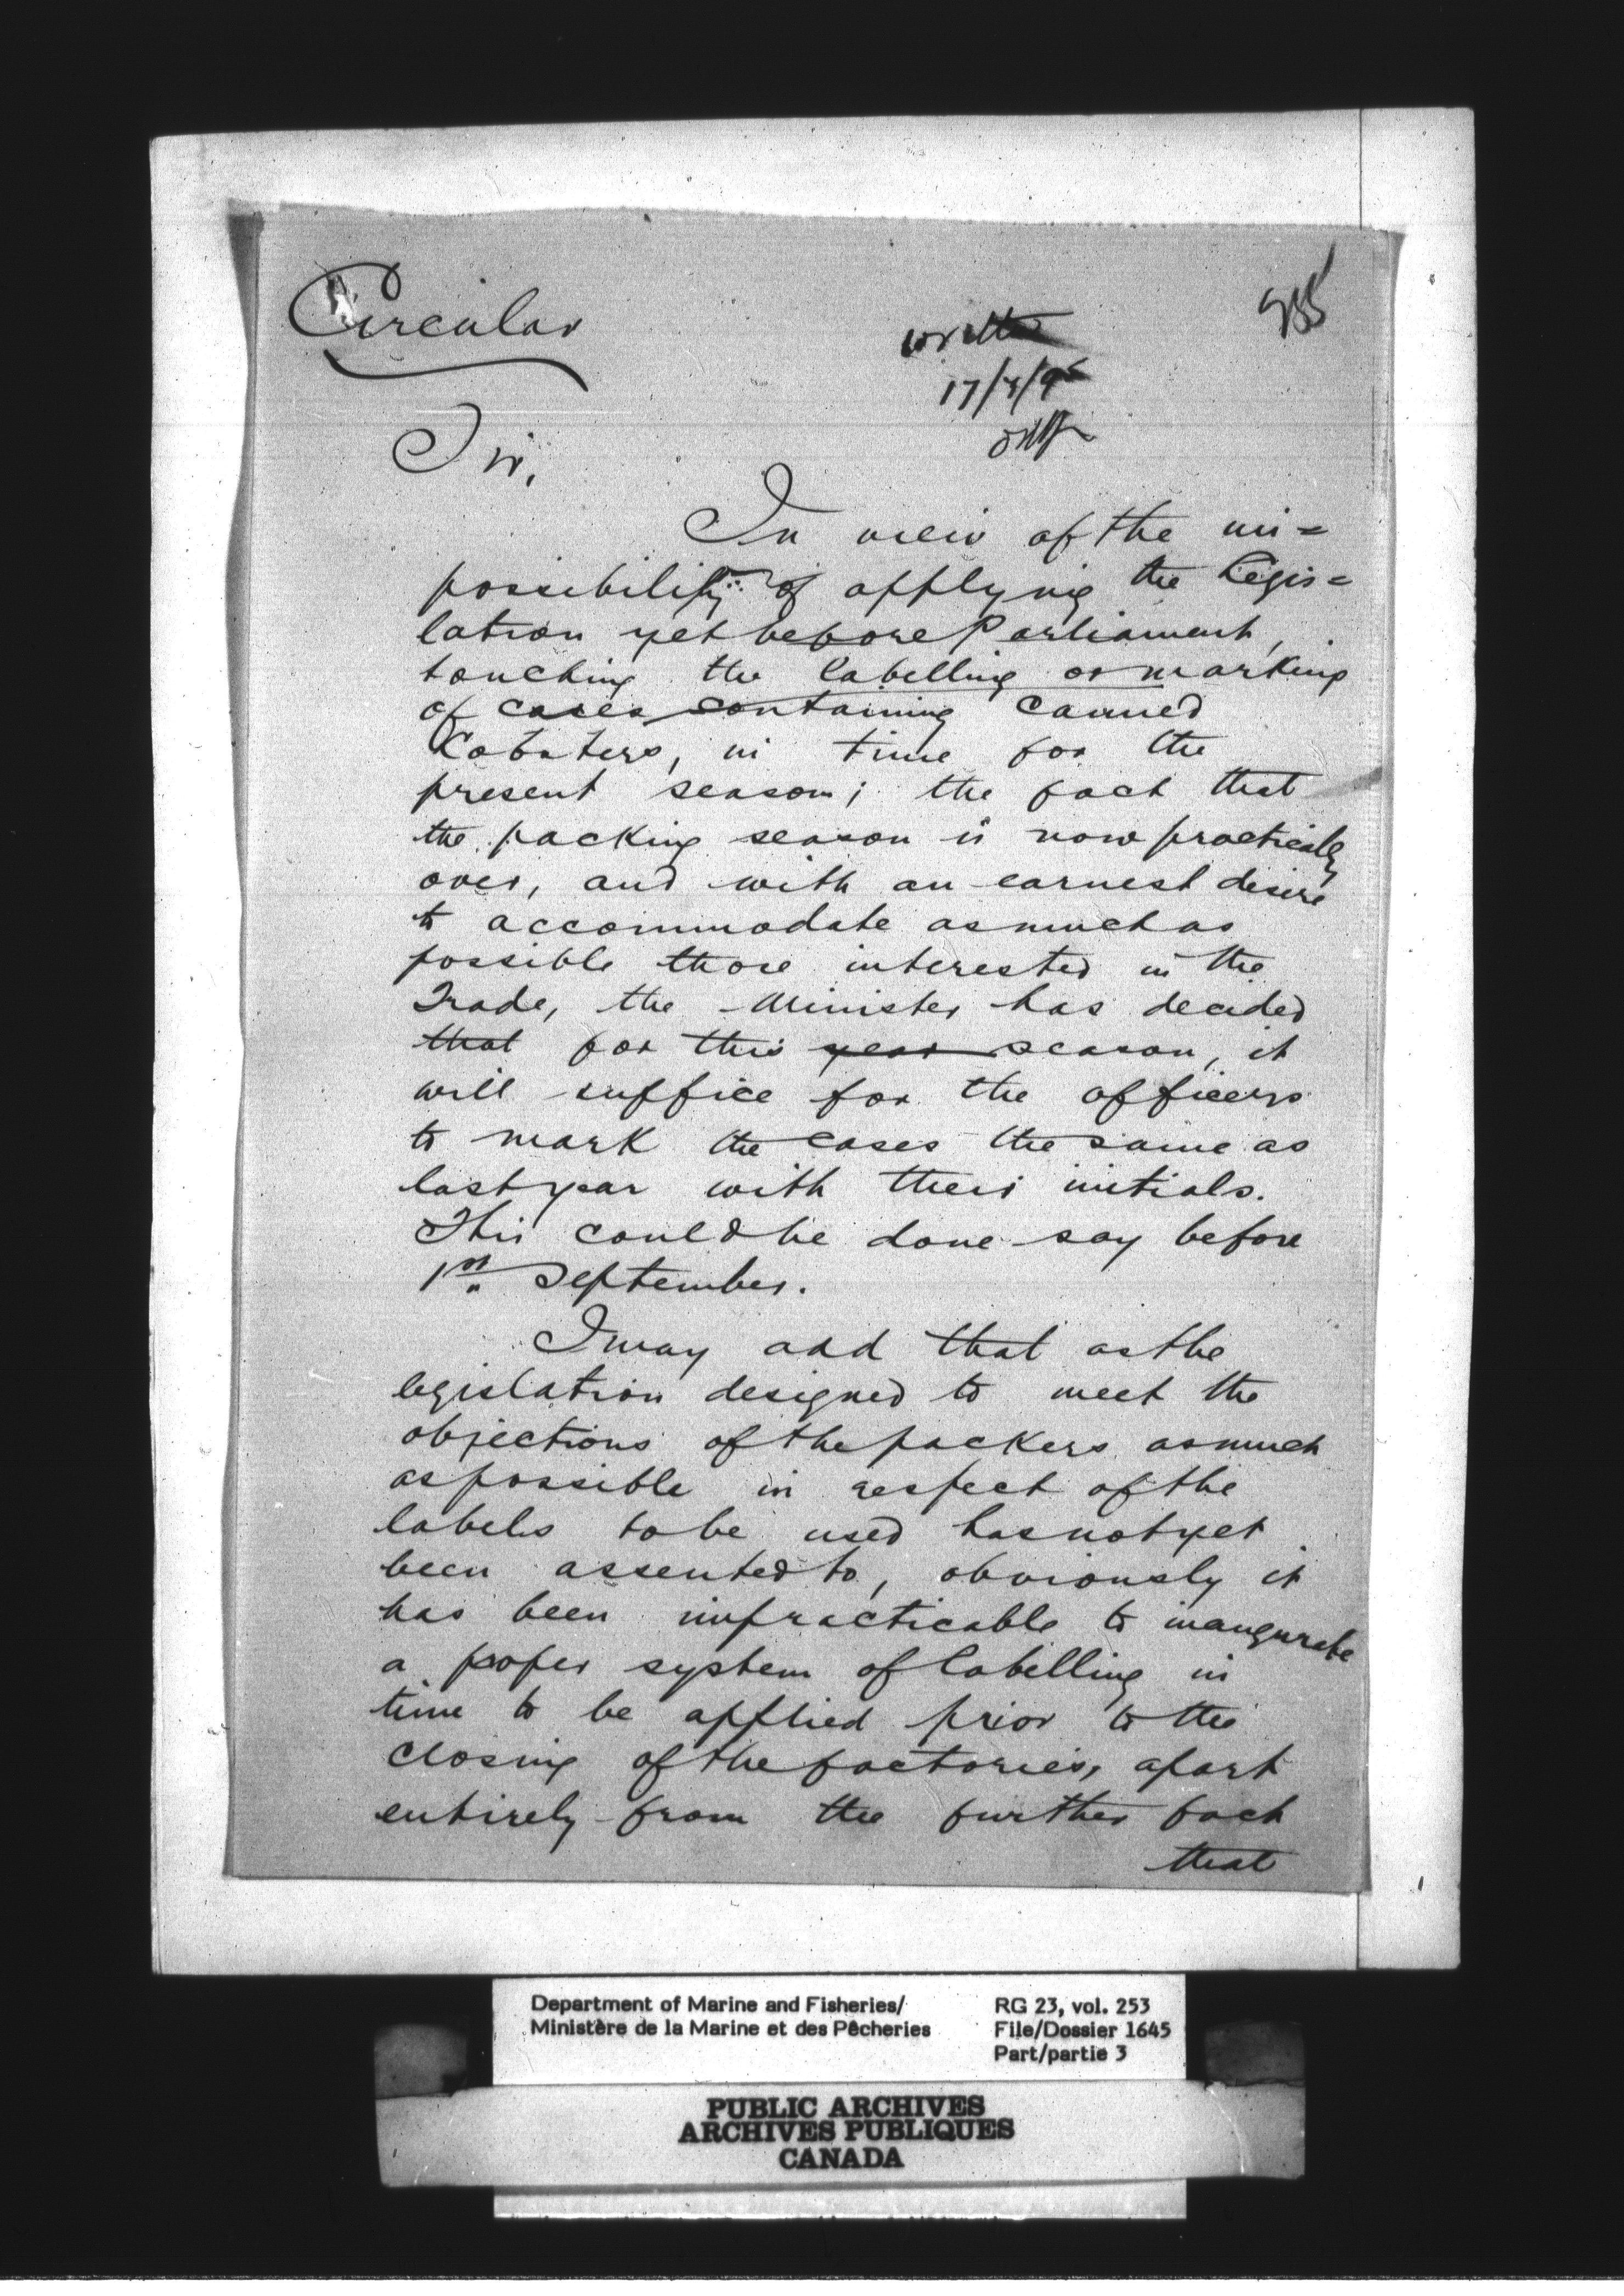 Circular
written
17/7/95
Sir,
In view of the im=
possibility of applying the Legis=
lation yet before Parliament,
touching the labelling or marking
of cases containing canned
Lobsters, in time for the
present season; the fact that
the packing season is now practically
over, and with an earnest desire
to accommodate as much as
possible those interested in the
Trade, the Minister has decided
that for this year season, it
will suffice for the officers
to mark the cases the same as
last year with their initials.
This could be done say before
1st September.
I may add that as the
legislation designed to meet the
objections of the packers as much
as possible in respect of the
labels to be used has not yet
been assented to, obviously it
has been impracticable to inaugurate
a proper system of labelling in
time to be applied prior to the
closing of the factories, apart
entirely from the further fact
that
Department of Marine and Fisheries/
Ministère de la Marine et des Pêcheries
RG 23, vol. 253
File/Dossier 1645
Part/partie 3
PUBLIC ARCHIVES
ARCHIVES PUBLIQUES
CANADA